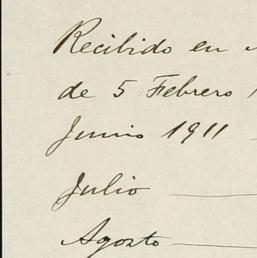 Recibido en
de 5 Febrero
Junio 1911 —
Julio —
Agosto —